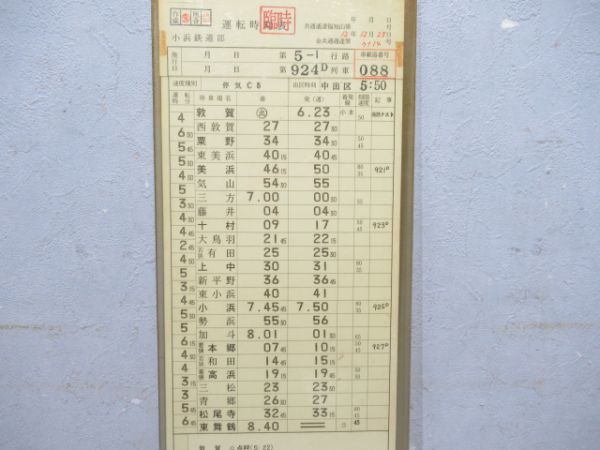 運転時刻表
臨時
年 月 日
小浜鉄道部
施行日 月 日 第 5-1 行路
月 日 第 924D 列車 088
速度種別 停気C5 出区時刻 中出区 5:50
運転時分 停車場名 着 発(通) 着発線 制限速度 記事
敦賀 6.23
4
西敦賀 27 27 30
6 30
粟野 34 34 30
5 30
東美浜 40 15 40 45
5 30
美浜 46 15 50 921D
4 30
気山 54 30 55
5
三方 7.00 00 30
3 30
藤井 04 04 30
4 30
十村 09 17 923D
4 45
大鳥羽 21 45 22 15
2 45
有田 25 25 30
4 30
上中 30 31
5 30
新平野 36 36 45
3 15
東小浜 40 41
4 45
小浜 7.45 45 7.50 925D
5 30
勢浜 55 30 56
5
加斗 8.01 01 30
6 15
若狭本郷 07 45 10 15 927D
4 30
若狭和田 14 45 15 15
4
若狭高浜 19 15 19 45
3 15
三松 23 23 30
3
青郷 26 30 27
5 45
松尾寺 32 45 33 15
6 45
東舞鶴 8.40